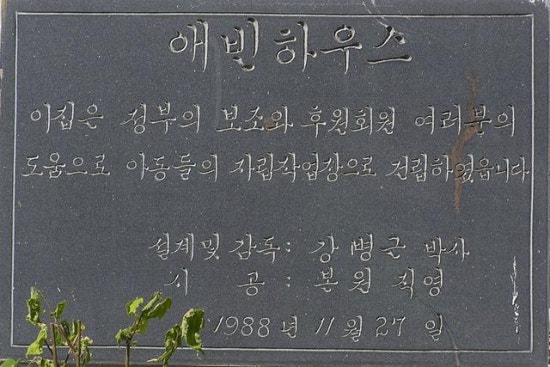 애빈하우스
이집은 정부의 보조와 후원회원 여러분의
도움으로 아동들의 자립작업장으로 건립하였읍니다
설계및 감독: 강병근 박사
시 공: 본원 직영
1988년 11월 27일